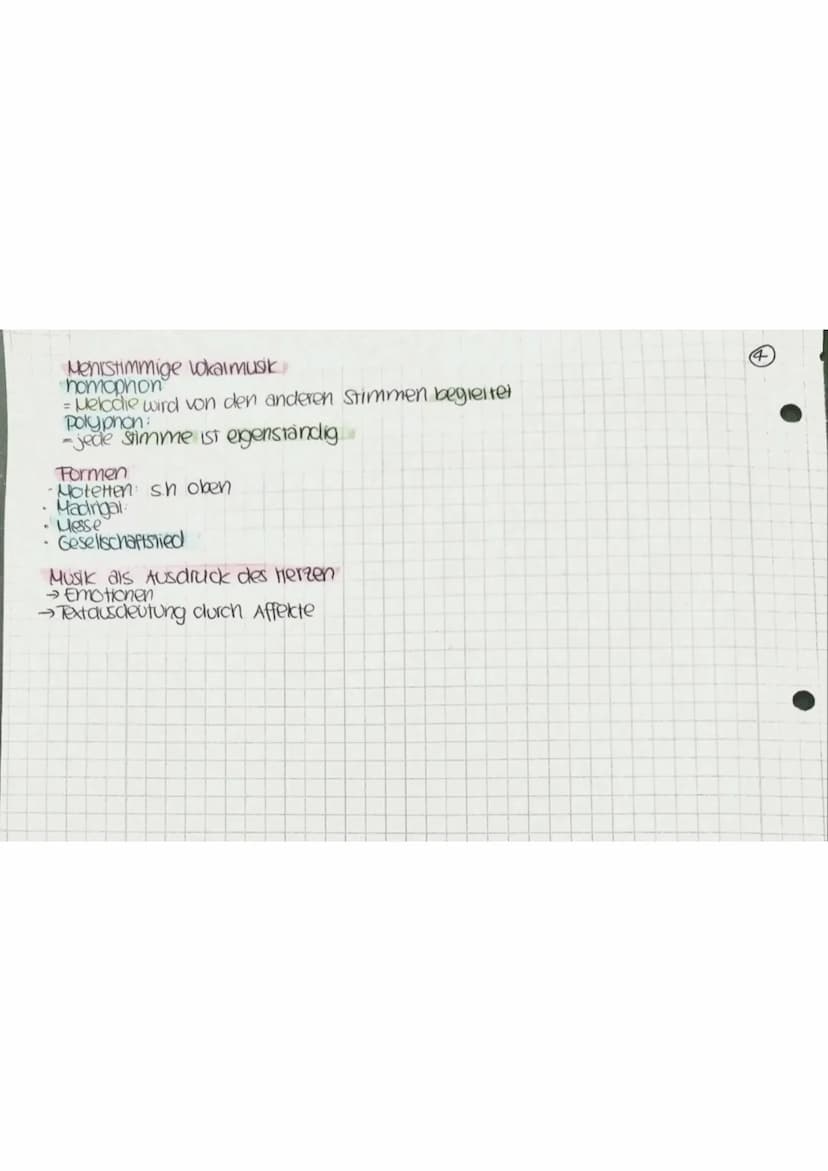 Mehrstimmige Vokalmusik
4
homophon
= Melodie wird von den anderen Stimmen begleitet
polyphon:
= jede Stimme ist eigenständig
Formen
- Motetten: s.h oben
· Madrigal:
· Messe
· Gesellschaftslied
Musik als Ausdruck des Herzen
→ Emotionen
→ Textausdeutung durch Affekte